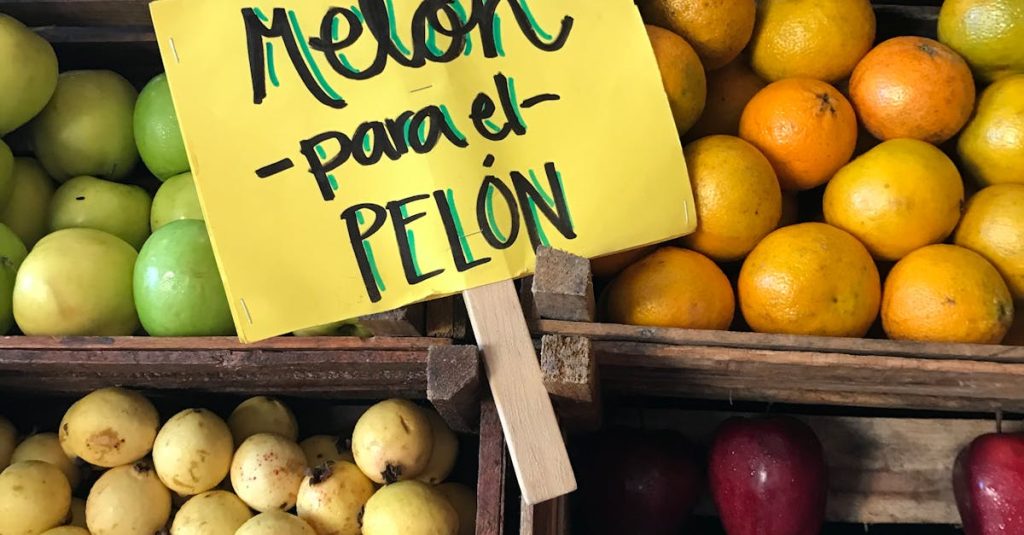 Melon
-para el-
PELÓN